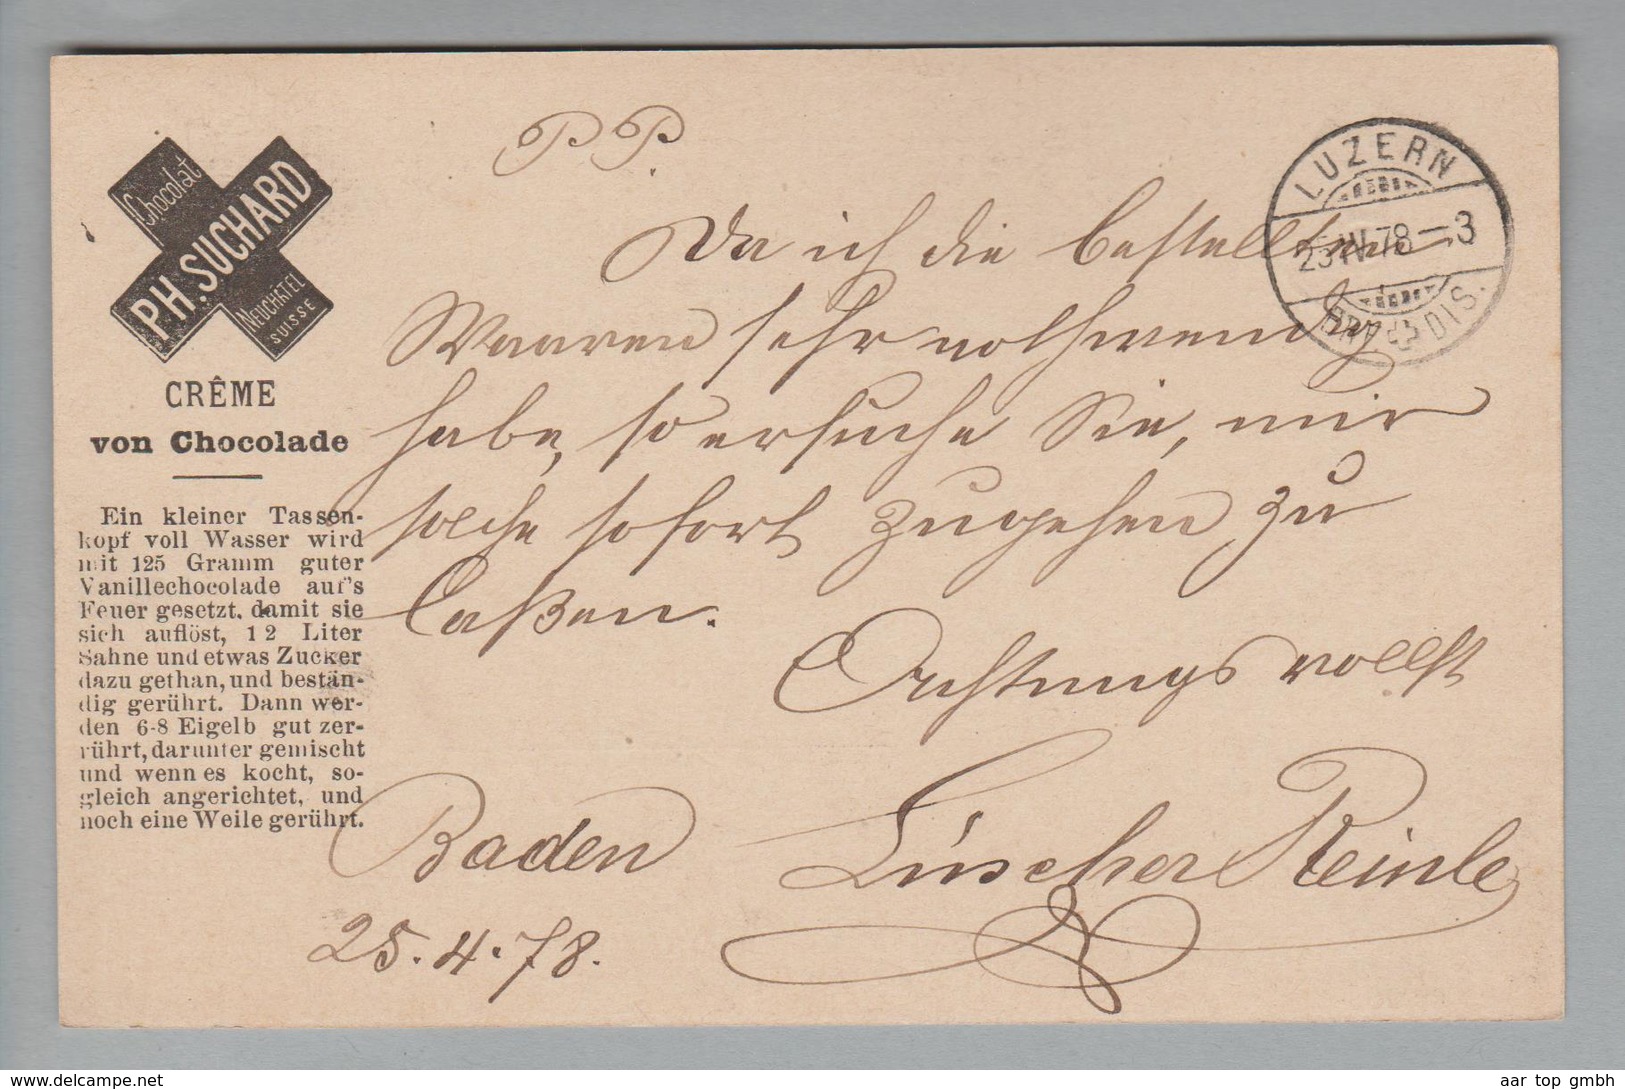 Chocolat
PH. SUCHARD
NEUCHÂTEL
SUISSE
CRÊME
von Chocolade
Ein kleiner Tassen-
kopf voll Wasser wird
mit 125 Gramm guter
Vanillechocolade auf's
Feuer gesetzt, damit sie
sich auflöst, 1 2 Liter
Sahne und etwas Zucker
dazu gethan, und bestän-
dig gerührt. Dann wer-
den 6-8 Eigelb gut zer-
rührt, darunter gemischt
und wenn es kocht, so-
gleich angerichtet, und
noch eine Weile gerührt.
P. P.
LUZERN
23 IV 78 - 3
BRF. DIS.
Da ich die bestellten
Waaren sehr nothwendig
habe, so ersuche Sie, mir
solche sofort zugehen zu
laßen.
Achtungsvollst
Baden Lüscher Reinle
25. 4. 78.
aar top gmbh
www.delcampe.net